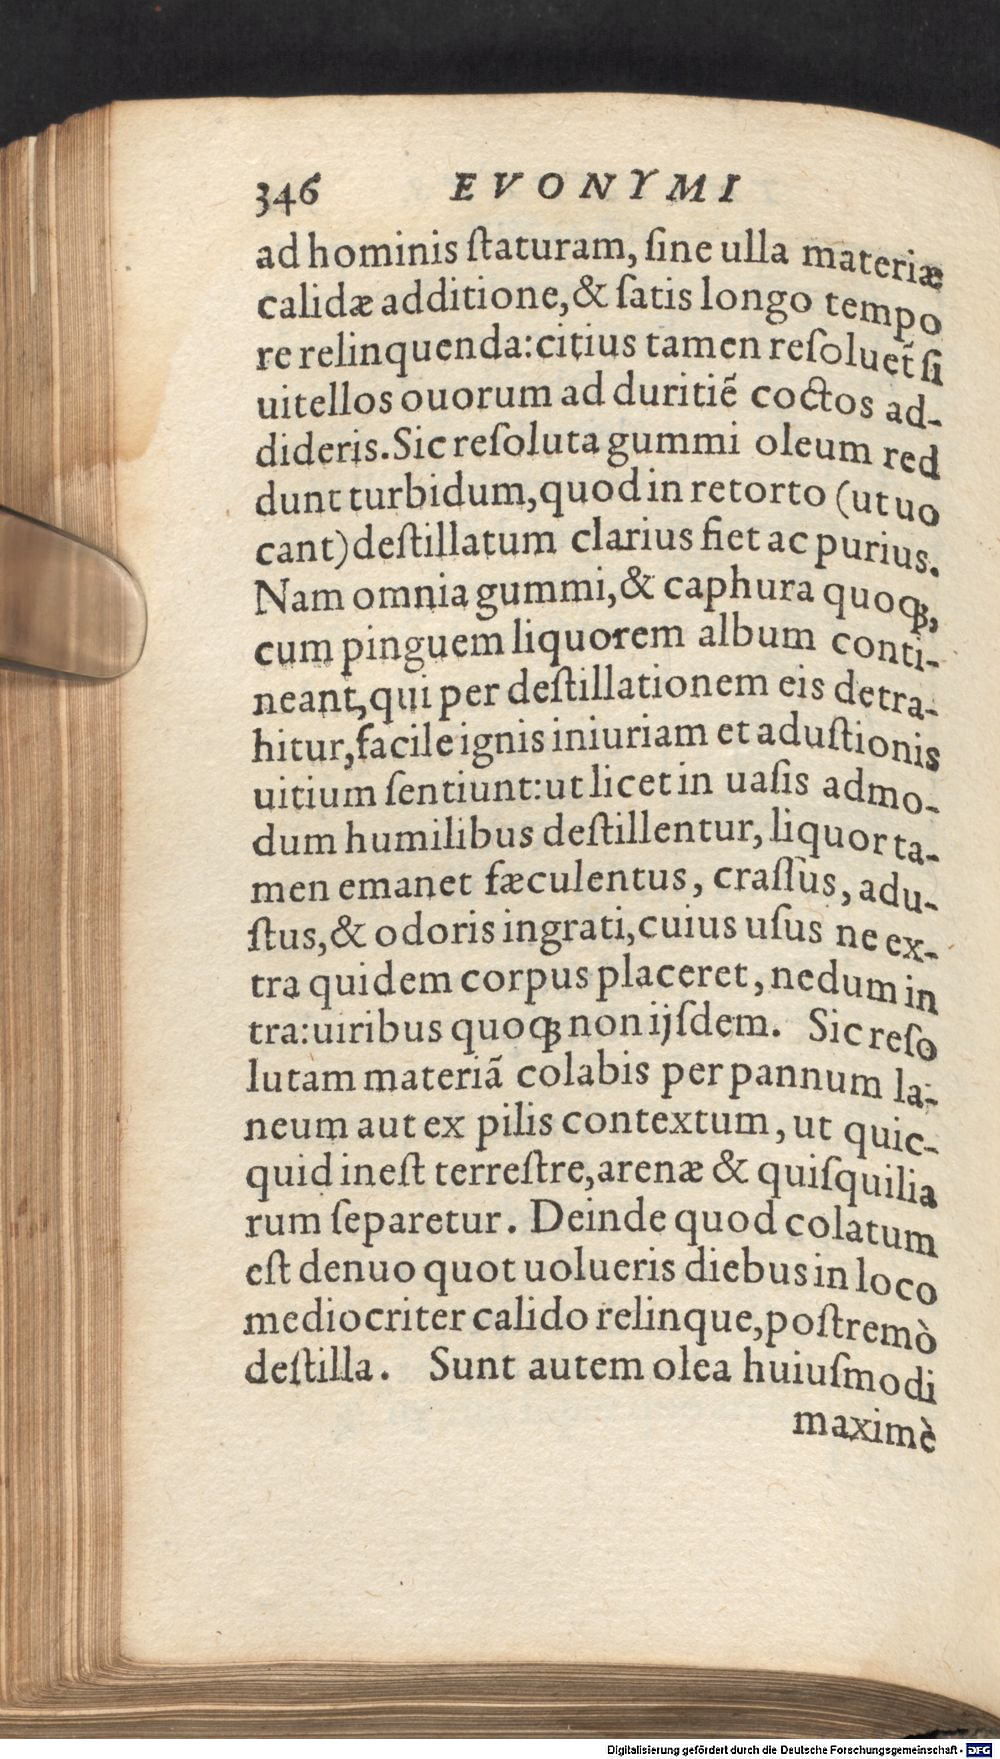 346 EVONYMI
ad hominis ſtaturam, ſine ulla materiæ
calidæ additione,& ſatis longo tempo
re relinquenda:citius tamen reſoluet̃ ſi
uitellos ouorum ad duritiẽ coctos ad-
dideris.Sic reſoluta gummi oleum red
dunt turbidum,quod in retorto (ut uo
cant) deſtillatum clarius fiet ac purius.
Nam omnia gummi,& caphura quoqꝫ,
cum pinguem liquorem album conti-
neant,qui per deſtillationem eis detra-
hitur,facile ignis iniuriam et aduſtionis
uitium ſentiunt:ut licet in uaſis admo-
dum humilibus deſtillentur, liquor ta-
men emanet fæculentus, craſſus, adu-
ſtus,& odoris ingrati,cuius uſus ne ex-
tra quidem corpus placeret, nedum in
tra:uiribus quoqꝫ non ijſdem. Sic reſo
lutam materiã colabis per pannum la-
neum aut ex pilis contextum, ut quic-
quid ineſt terreſtre,arenæ & quiſquilia
rum ſeparetur. Deinde quod colatum
eſt denuo quot uolueris diebus in loco
mediocriter calido relinque,poſtremò
deſtilla. Sunt autem olea huiuſmodi
maximè
Digitalisierung gefördert durch die Deutsche Forschungsgemeinschaft - DFG